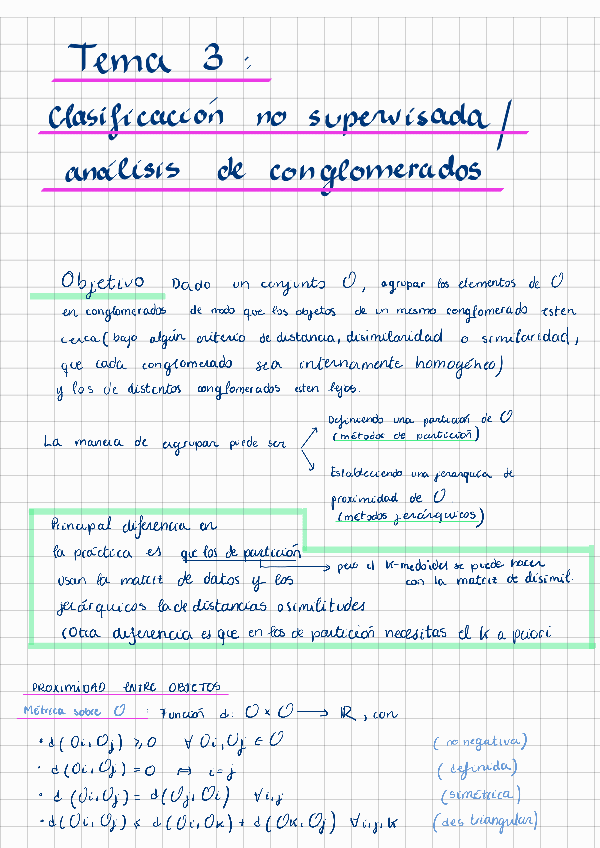 Tema 3 :
Clasificación no supervisada /
análisis de conglomerados
Objetivo Dado un conjunto O, agrupar los elementos de O
en conglomerados de modo que los objetos de un mismo conglomerado esten
cerca (bajo algún criterio de distancia, disimilaridad o similaridad,
que cada conglomerado sea internamente homogéneo)
y los de distintos conglomerados esten lejos.
La manera de agrupar puede ser
Definiendo una partición de O
(métodos de partición)
Estableciendo una jerarquía de
proximidad de O
(métodos jerárquicos)
Principal diferencia en
la práctica es que los de partición
pero el k-medoides se puede hacer
con la matriz de disimil.
usan la matriz de datos y los
jerárquicos la de distancias o similitudes
(Otra diferencia es que en los de partición necesitas el k a priori
PROXIMIDAD ENTRE OBJETOS
Métrica sobre O : Función d: O × O → ℝ, con
• d(Oi, Oj) ≥ 0 ∀ Oi, Oj ∈ O (no negativa)
• d(Oi, Oj) = 0 ⇔ i = j (definida)
• d(Oi, Oj) = d(Oj, Oi) ∀ i,j (simétrica)
• d(Oi, Oj) ≤ d(Oi, Ok) + d(Ok, Oj) ∀ i,j,k (des triangular)